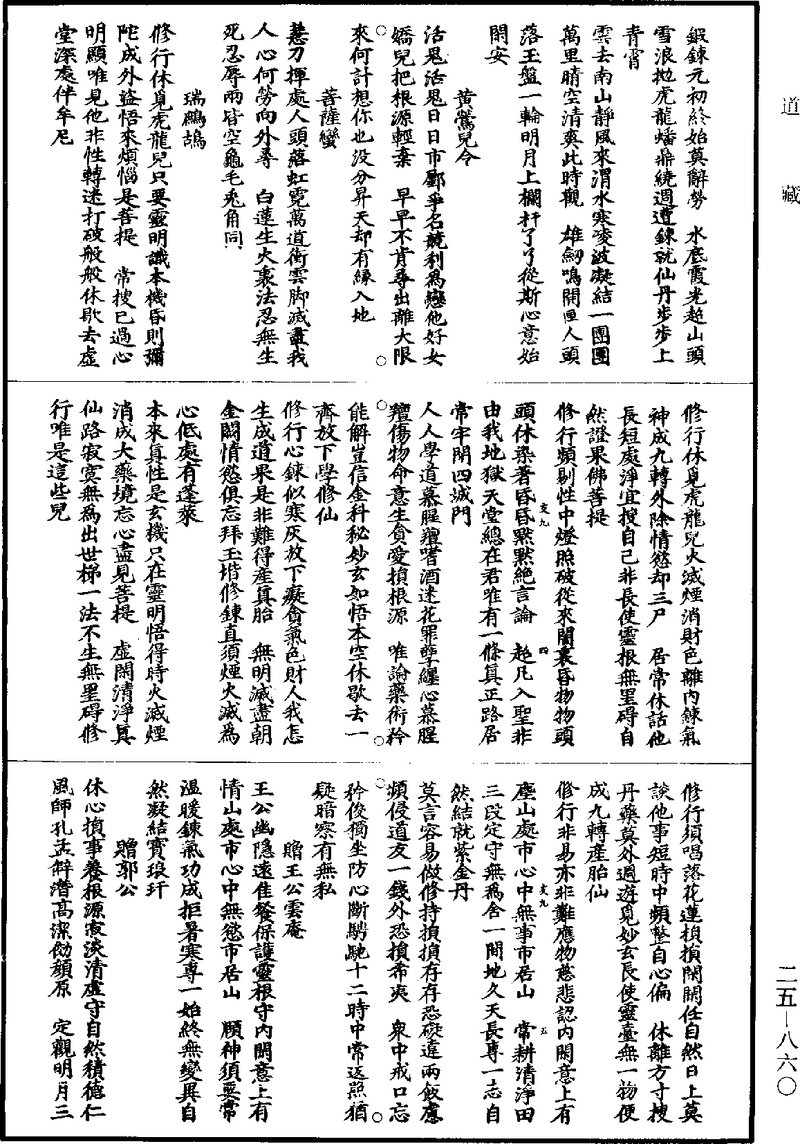 道藏
鍛鍊元初終始莫辭勞　水底霞光超山頭
雪浪拋虎龍蟠鼎繞週遭鍊就仙丹步步上
青霄
雲去南山靜風來渭水寒凌波凝結一團團
萬里晴空清爽此時觀　雄劒鳴開匣人頭
落玉盤一輪明月上欄杆了了從斯心意始
閑安
黃鶯兒令
活鬼活鬼日日市鄽爭名競利為戀他好女
嬌兒把根源輕棄　早早不肯尋出離大限
來何計想你也没分昇天却有緣入地
菩薩蠻
慧刀揮處人頭落虹霓萬道衝雲脚滅盡我
人心何勞向外尋　白蓮生火裏法忍無生
死忍辱兩皆空龜毛兔角同
瑞鷓鴣
修行休覓虎龍兒只要靈明識本機昏則彌
陀成外盜悟來煩惱是菩提　常搜已過心
明顯唯見他非性轉迷打破般般休歇去虛
堂深處伴牟尼
修行休覓虎龍兒火滅煙消財色離内鍊氣
神成九轉外除情慾却三尸　居常休話他
長短處淨宜搜自己非長使靈根無罣碍自
然證果佛菩提
修行頻剔性中燈照破從來闇裏昏物物頭
頭休染著昏昏默默絶言論　超凡入聖非
由我地獄天堂總在君唯有一條真正路居
常牢閉四城門
人人學道慕腥羶嗜酒迷花罪孽纏心慕腥
羶傷物命意生貪愛損根源　唯論藥術矜
能解豈信金科秘妙玄如悟本空休歇去一
齊放下學修仙
修行心鍊似寒灰放下癡貪氣色財人我怎
生成道果是非難得產真胎　無明滅盡朝
金闕情慾俱忘拜玉堦修鍊直須煙火滅為
心低處有蓬萊
本來真性是玄機只在靈明悟得時火滅煙
消成大藥境忘心盡見菩提　虛閑清淨真
仙路寂寞無為出世梯一法不生無罣碍修
行唯是這些兒
修行須唱落花蓮損損閑閑任自然日上莫
談他事短時中頻整自心偏　休離方寸搜
丹藥莫外週遊覓妙玄長使靈臺無一物便
成九轉產胎仙
修行非易亦非難應物慈悲認内閑意上有
塵山處市心中無事市居山　常耕清淨田
三段定守無為舍一間地久天長專一志自
然結就紫金丹
莫言容易做修持損損存存恐礙違兩飯慮
頻侵道友一錢外恐損希夷　衆中戒口忘
矜俊獨坐防心斷騁馳十二時中常返照猶
疑暗察有無私
贈王公雲庵
王公幽隱速佳餐保護靈根守内閑意上有
情山處市心中無慾市居山　願神須要常
温暖鍊氣功成拒暑寒專一始終無變異自
然凝結寳琅玕
贈郭公
休心損事養根源寂淡清虛守自然積德仁
風師孔孟解潛高潔効顏原　定觀明月三
支九　四
支九　五
二五—八六〇